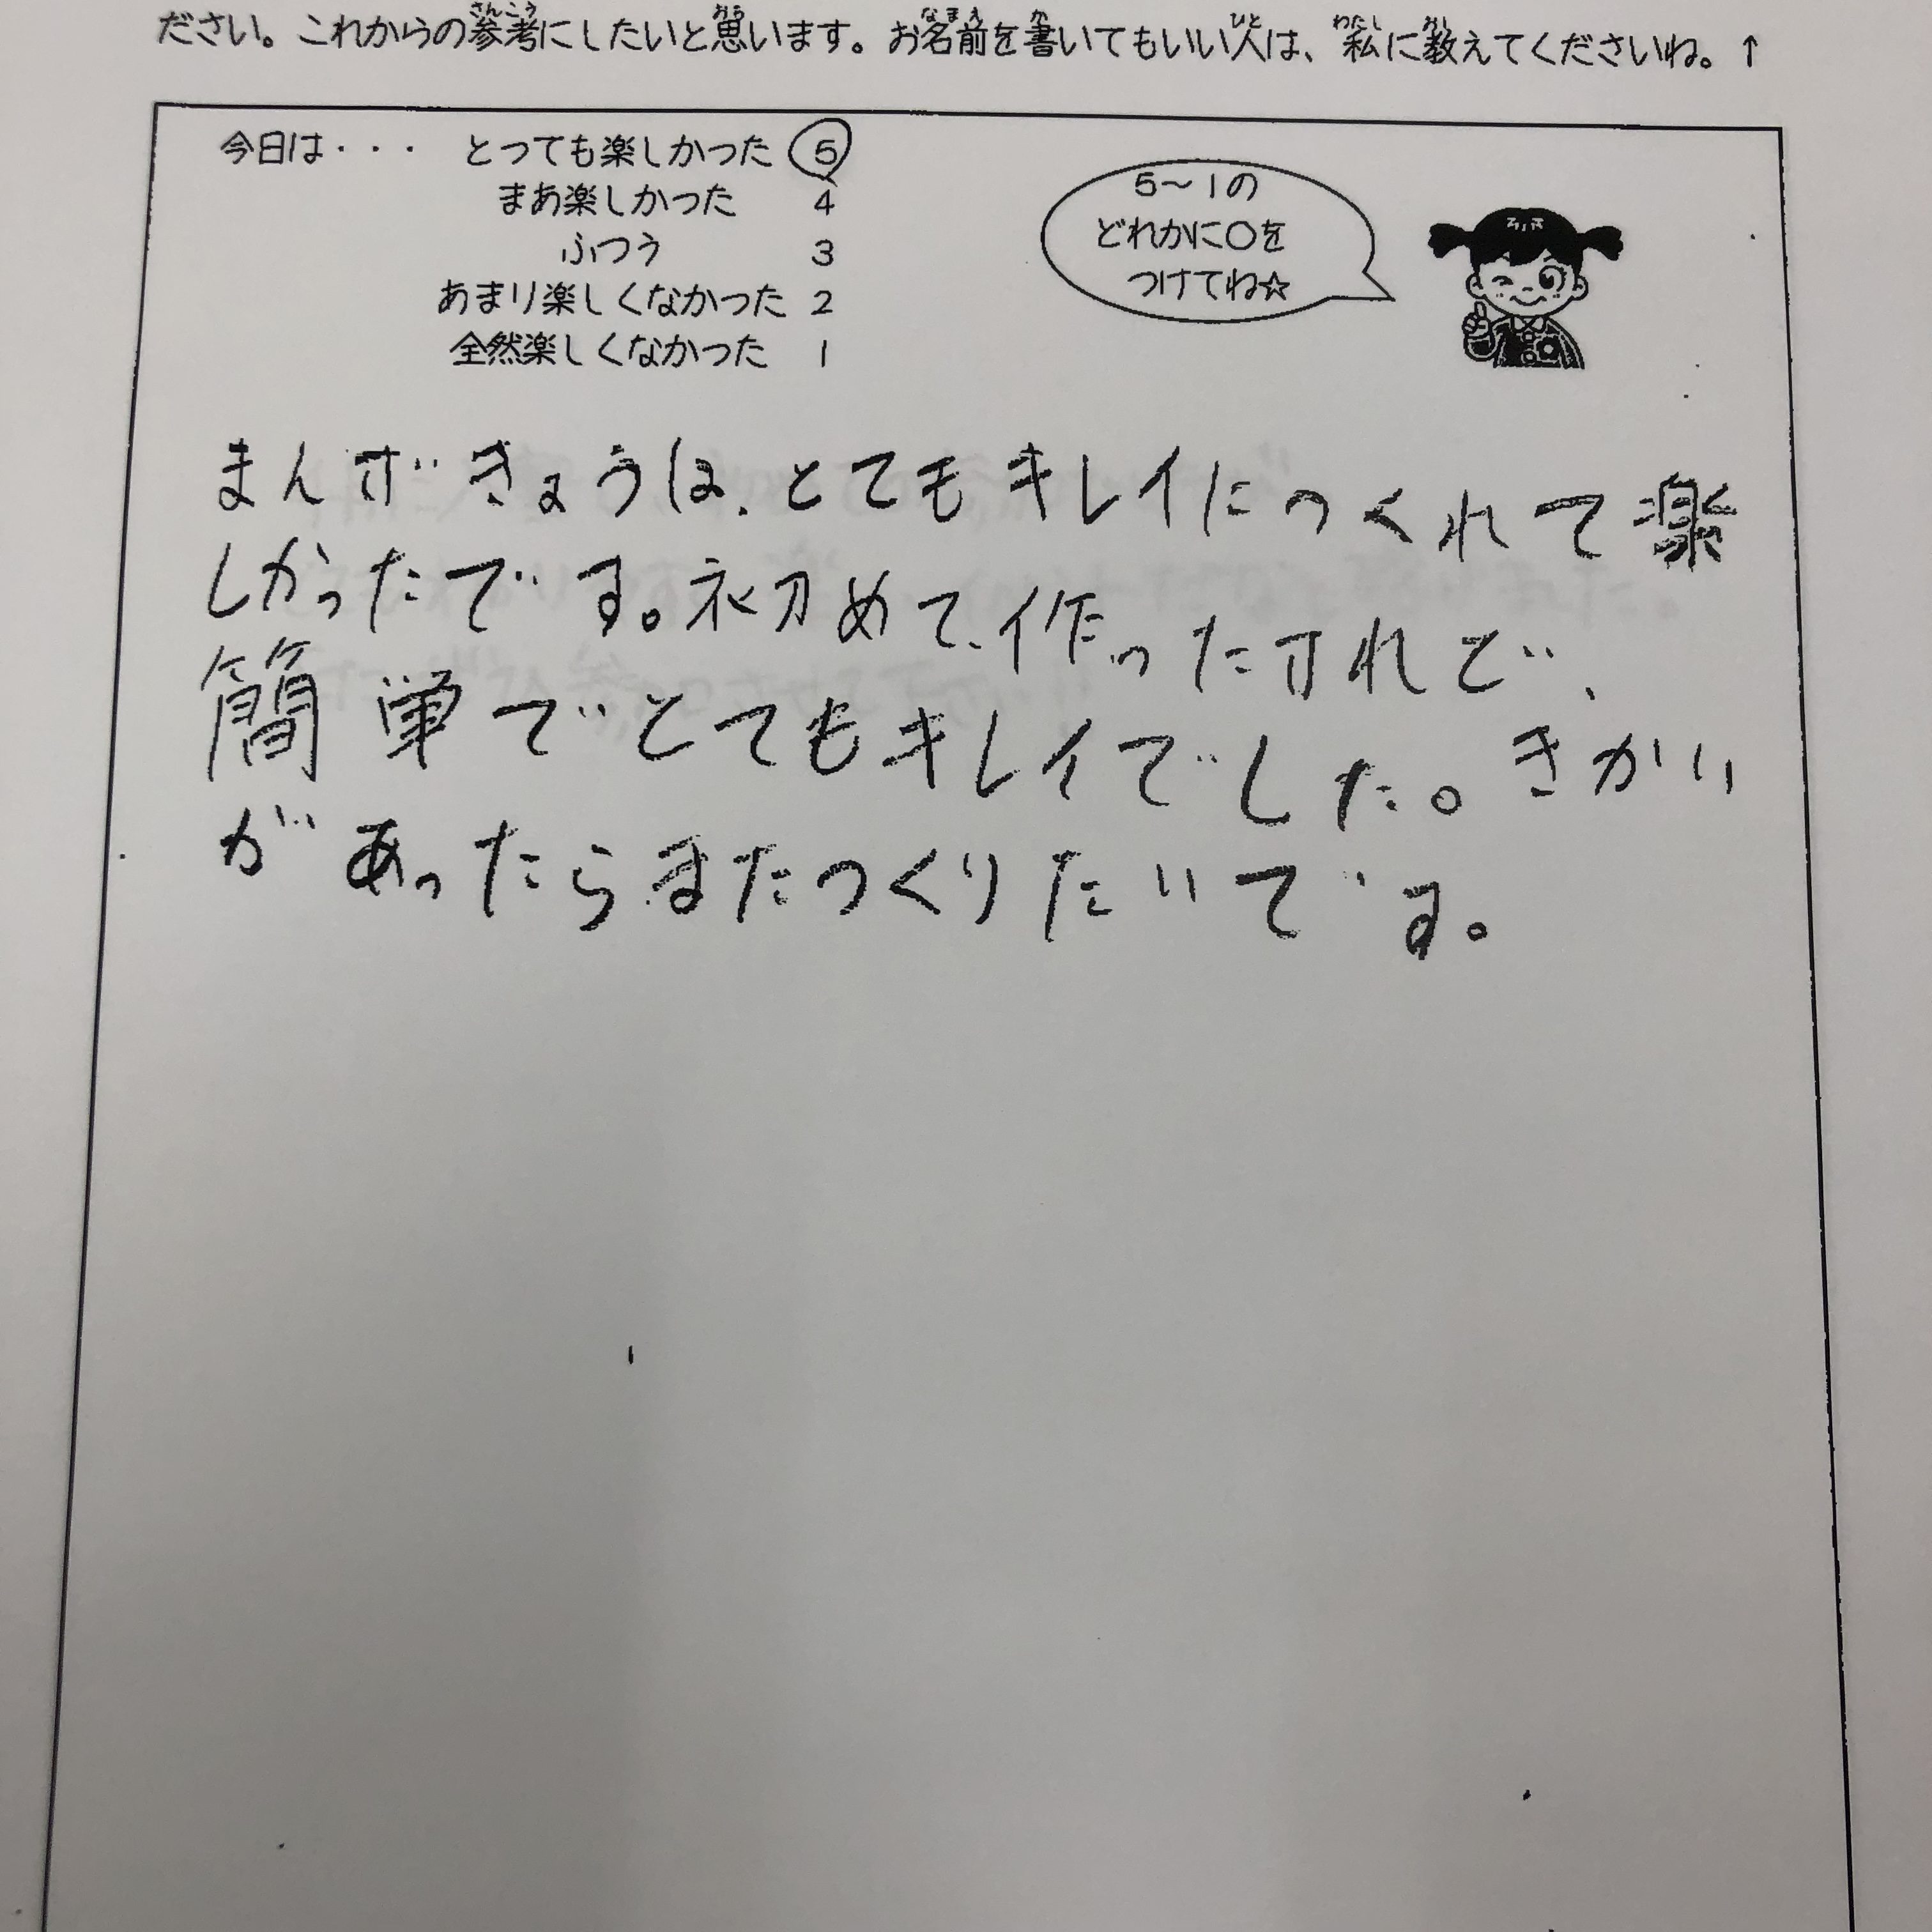 ださい。これからの参考にしたいと思います。お名前を書いてもいい人は、私に教えてくださいね。↑
今日は・・・ とっても楽しかった 5
まあ楽しかった 4
ふつう 3
あまり楽しくなかった 2
全然楽しくなかった 1
5～1の
どれかに○を
つけてね☆
まんげきょうは、とてもキレイにつくれて楽
しかったです。初めて、作ったけれど、
簡単でとてもキレイでした。きかい
があったらまたつくりたいです。